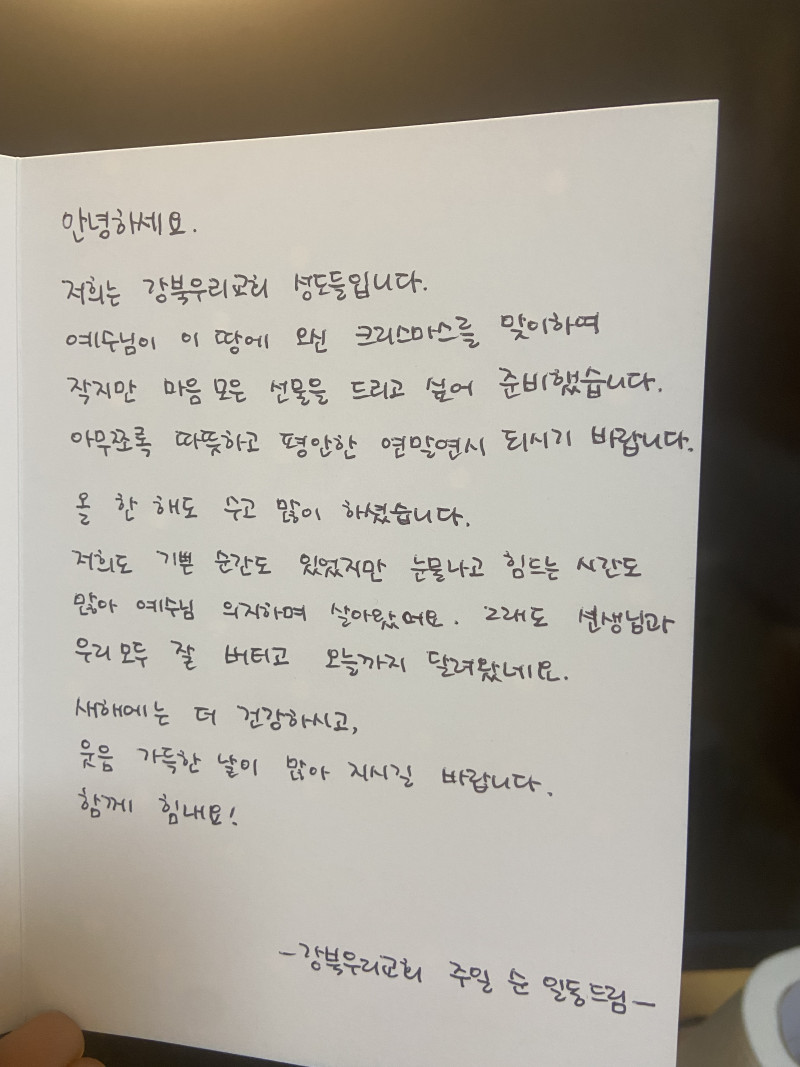 안녕하세요.
저희는 강북우리교회 성도들입니다.
예수님이 이 땅에 오신 크리스마스를 맞이하여
작지만 마음 모은 선물을 드리고 싶어 준비했습니다.
아무쪼록 따뜻하고 평안한 연말연시 되시기 바랍니다.
올 한 해도 수고 많이 하셨습니다.
저희도 기쁜 순간도 있었지만 눈물나고 힘드는 시간도
많아 예수님 의지하며 살아왔어요. 그래도 선생님과
우리 모두 잘 버티고 오늘까지 달려왔네요.
새해에는 더 건강하시고,
웃음 가득한 날이 많아 지시길 바랍니다.
함께 힘내요!
-강북우리교회 주일 순 일동드림-